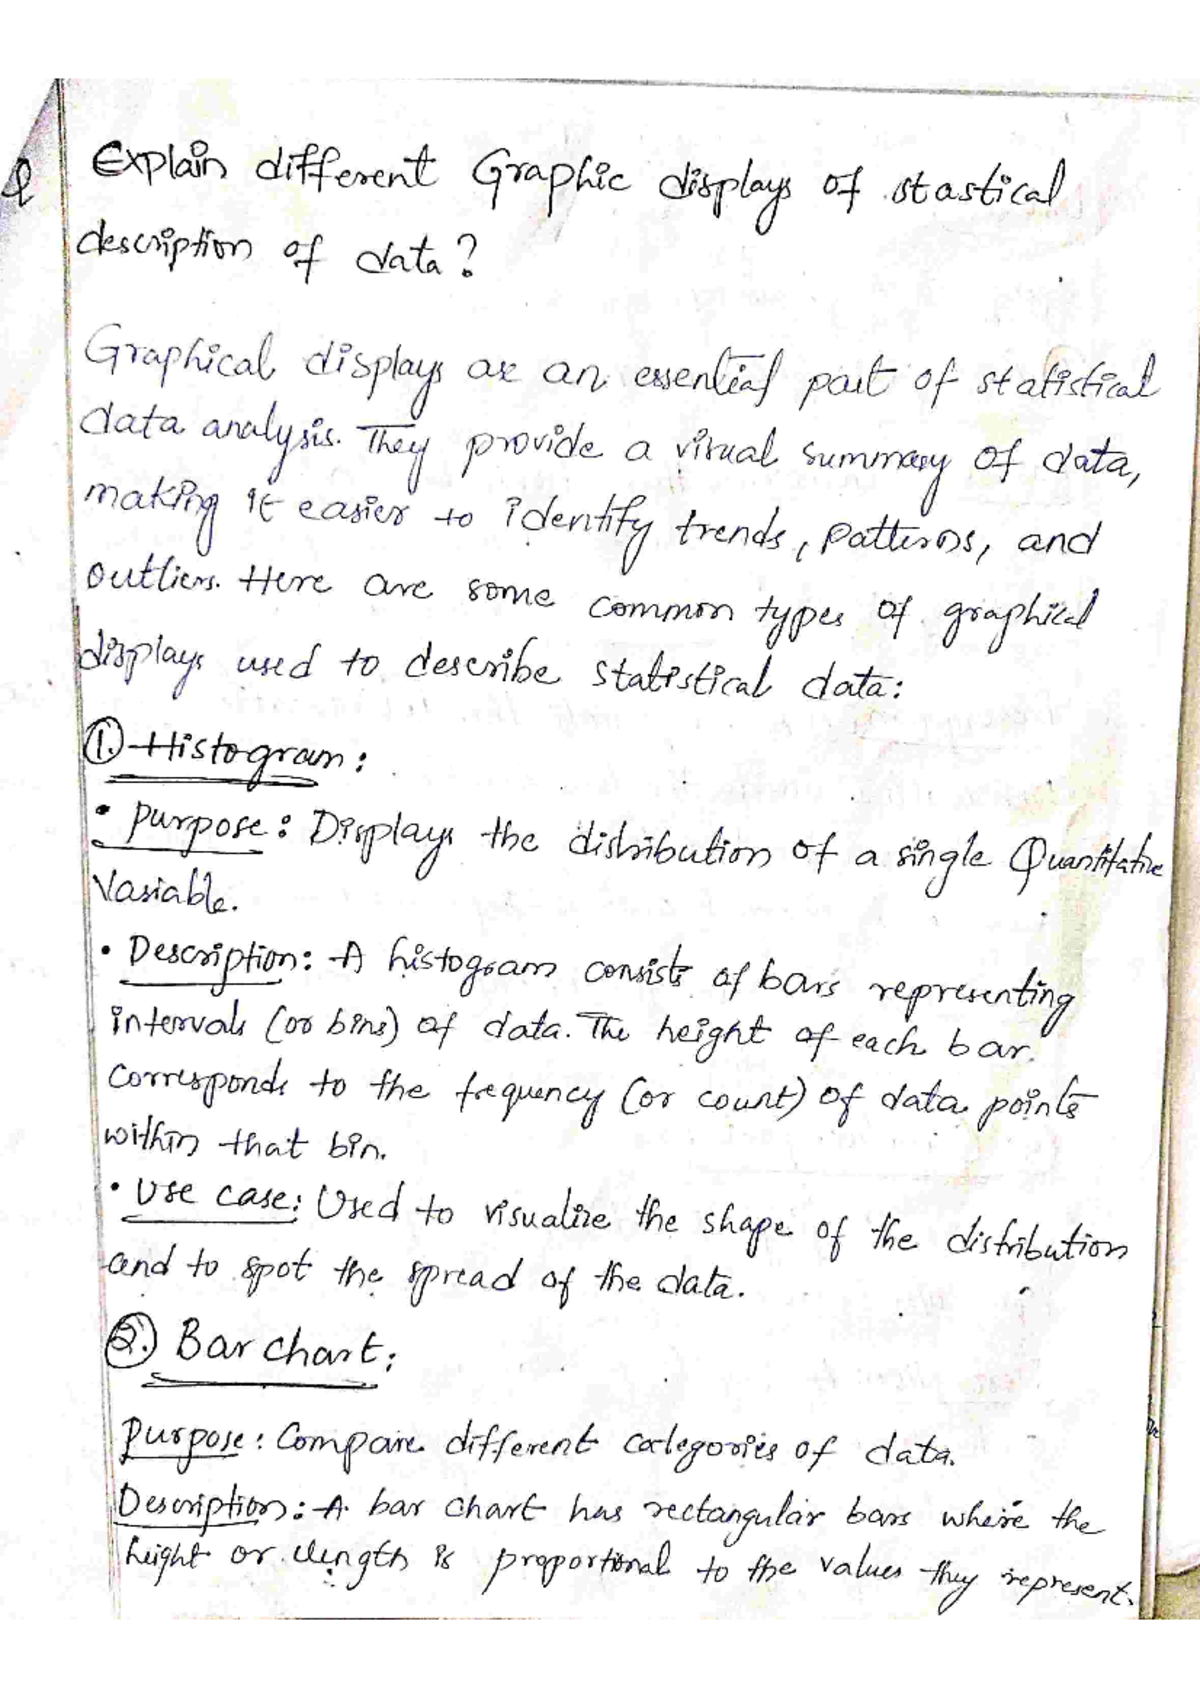 Q Explain different Graphic displays of stastical
description of data?
Graphical displays are an essential part of statistical
data analysis. They provide a visual summary of data,
making it easier to identify trends, patterns, and
outliers. Here are some common types of graphical
displays used to describe statistical data:
①. Histogram:
• purpose: Displays the distribution of a single Quantitative
Variable.
• Description: A histogram consists of bars representing
intervals (or bins) of data. The height of each bar.
corresponds to the frequency (or count) of data points
within that bin.
• Use case: Used to visualize the shape of the distribution
and to spot the spread of the data.
②. Bar chart:
Purpose: Compare different categories of data.
Description: A bar chart has rectangular bars where the
height or length is proportional to the values they represent.